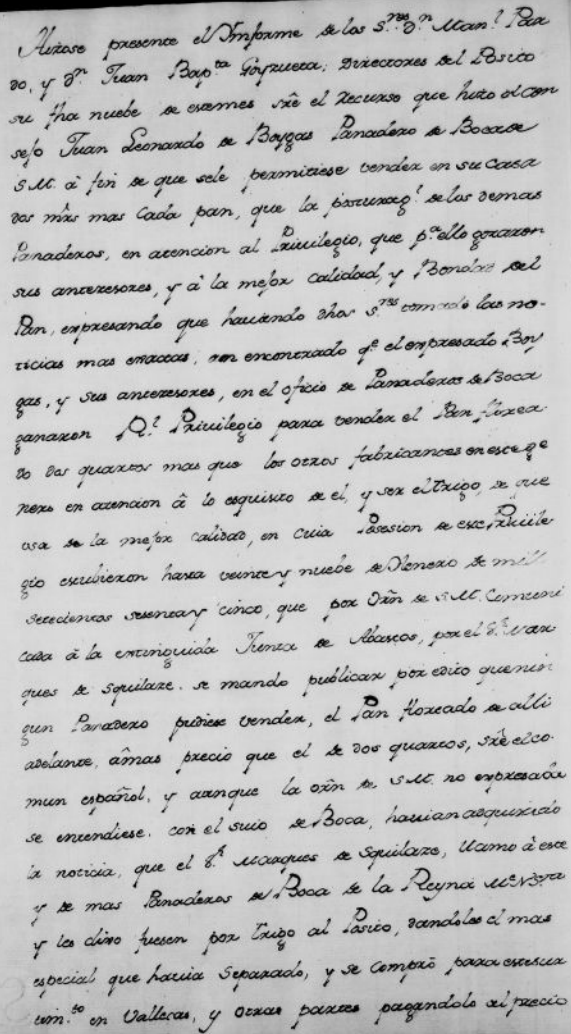 Hizose presente el Ynforme de los S.res D.n Man.l Par
do, y D.n Juan Bap.ta Goyzueta, Directores del Posito
su fha nuebe de este mes sre el recurso que hizo al con
sejo Juan Leonardo de Boygas Panadero de Boca de
S.M. â fin de que sele permitiese vender en su casa
dos mrs mas cada pan, que la postura g.l de los demas
Panaderos, en atencion al Privilegio, que p.a ello gozaron
sus antezesores, y â la mejor calidad, y Bondad del
Pan, expresando que haviendo dhos S.res tomado las no-
ticias mas exactas, han encontrado q.e el expresado Boy
gas, y sus antezesores, en el oficio de Panaderos de Boca
ganaron R.l Privilegio para vender el Pan florea
do dos quartos mas que los otros fabricantes en este ge
nero en atencion â lo esquisito de el, y ser el trigo, de que
usa de la mejor calidad, en cuia Posesion de este Privile
gio estubieron hasta veinte y nuebe de Henero de mill
setecientos sesenta y cinco, que por Orn de S.M. Comuni
cada â la extinguida Junta de Abastos, por el S.r Mar
ques de Squilaze, se mando publicar por edito que nin
gun Panadero pudiese vender, el Pan floreado de alli
adelante, âmas precio que el de dos quartos, sre el co
mun español, y aunque la orn de S.M. no expresaba
se entendiese con el suio de Boca, havian adquirido
la noticia, que el S.r Marques de Squilaze, llamo â este
y de mas Panaderos de Boca de la Reyna M.e N.ra
y les dixo fuesen por trigo al Posito, dandoles el mas
especial que havia Separado, y se Comprô para este sur
tim.to en Vallecas, y otras partes pagandolo al precio